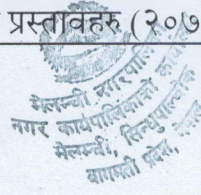 प्रस्तावहरु (२०७
मेलम्ची नगरपालिका
नगर कार्यपालिकाको कार्यालय
मेलम्ची, सिन्धुपाल्चोक
बागमती प्रदेश, नेपाल